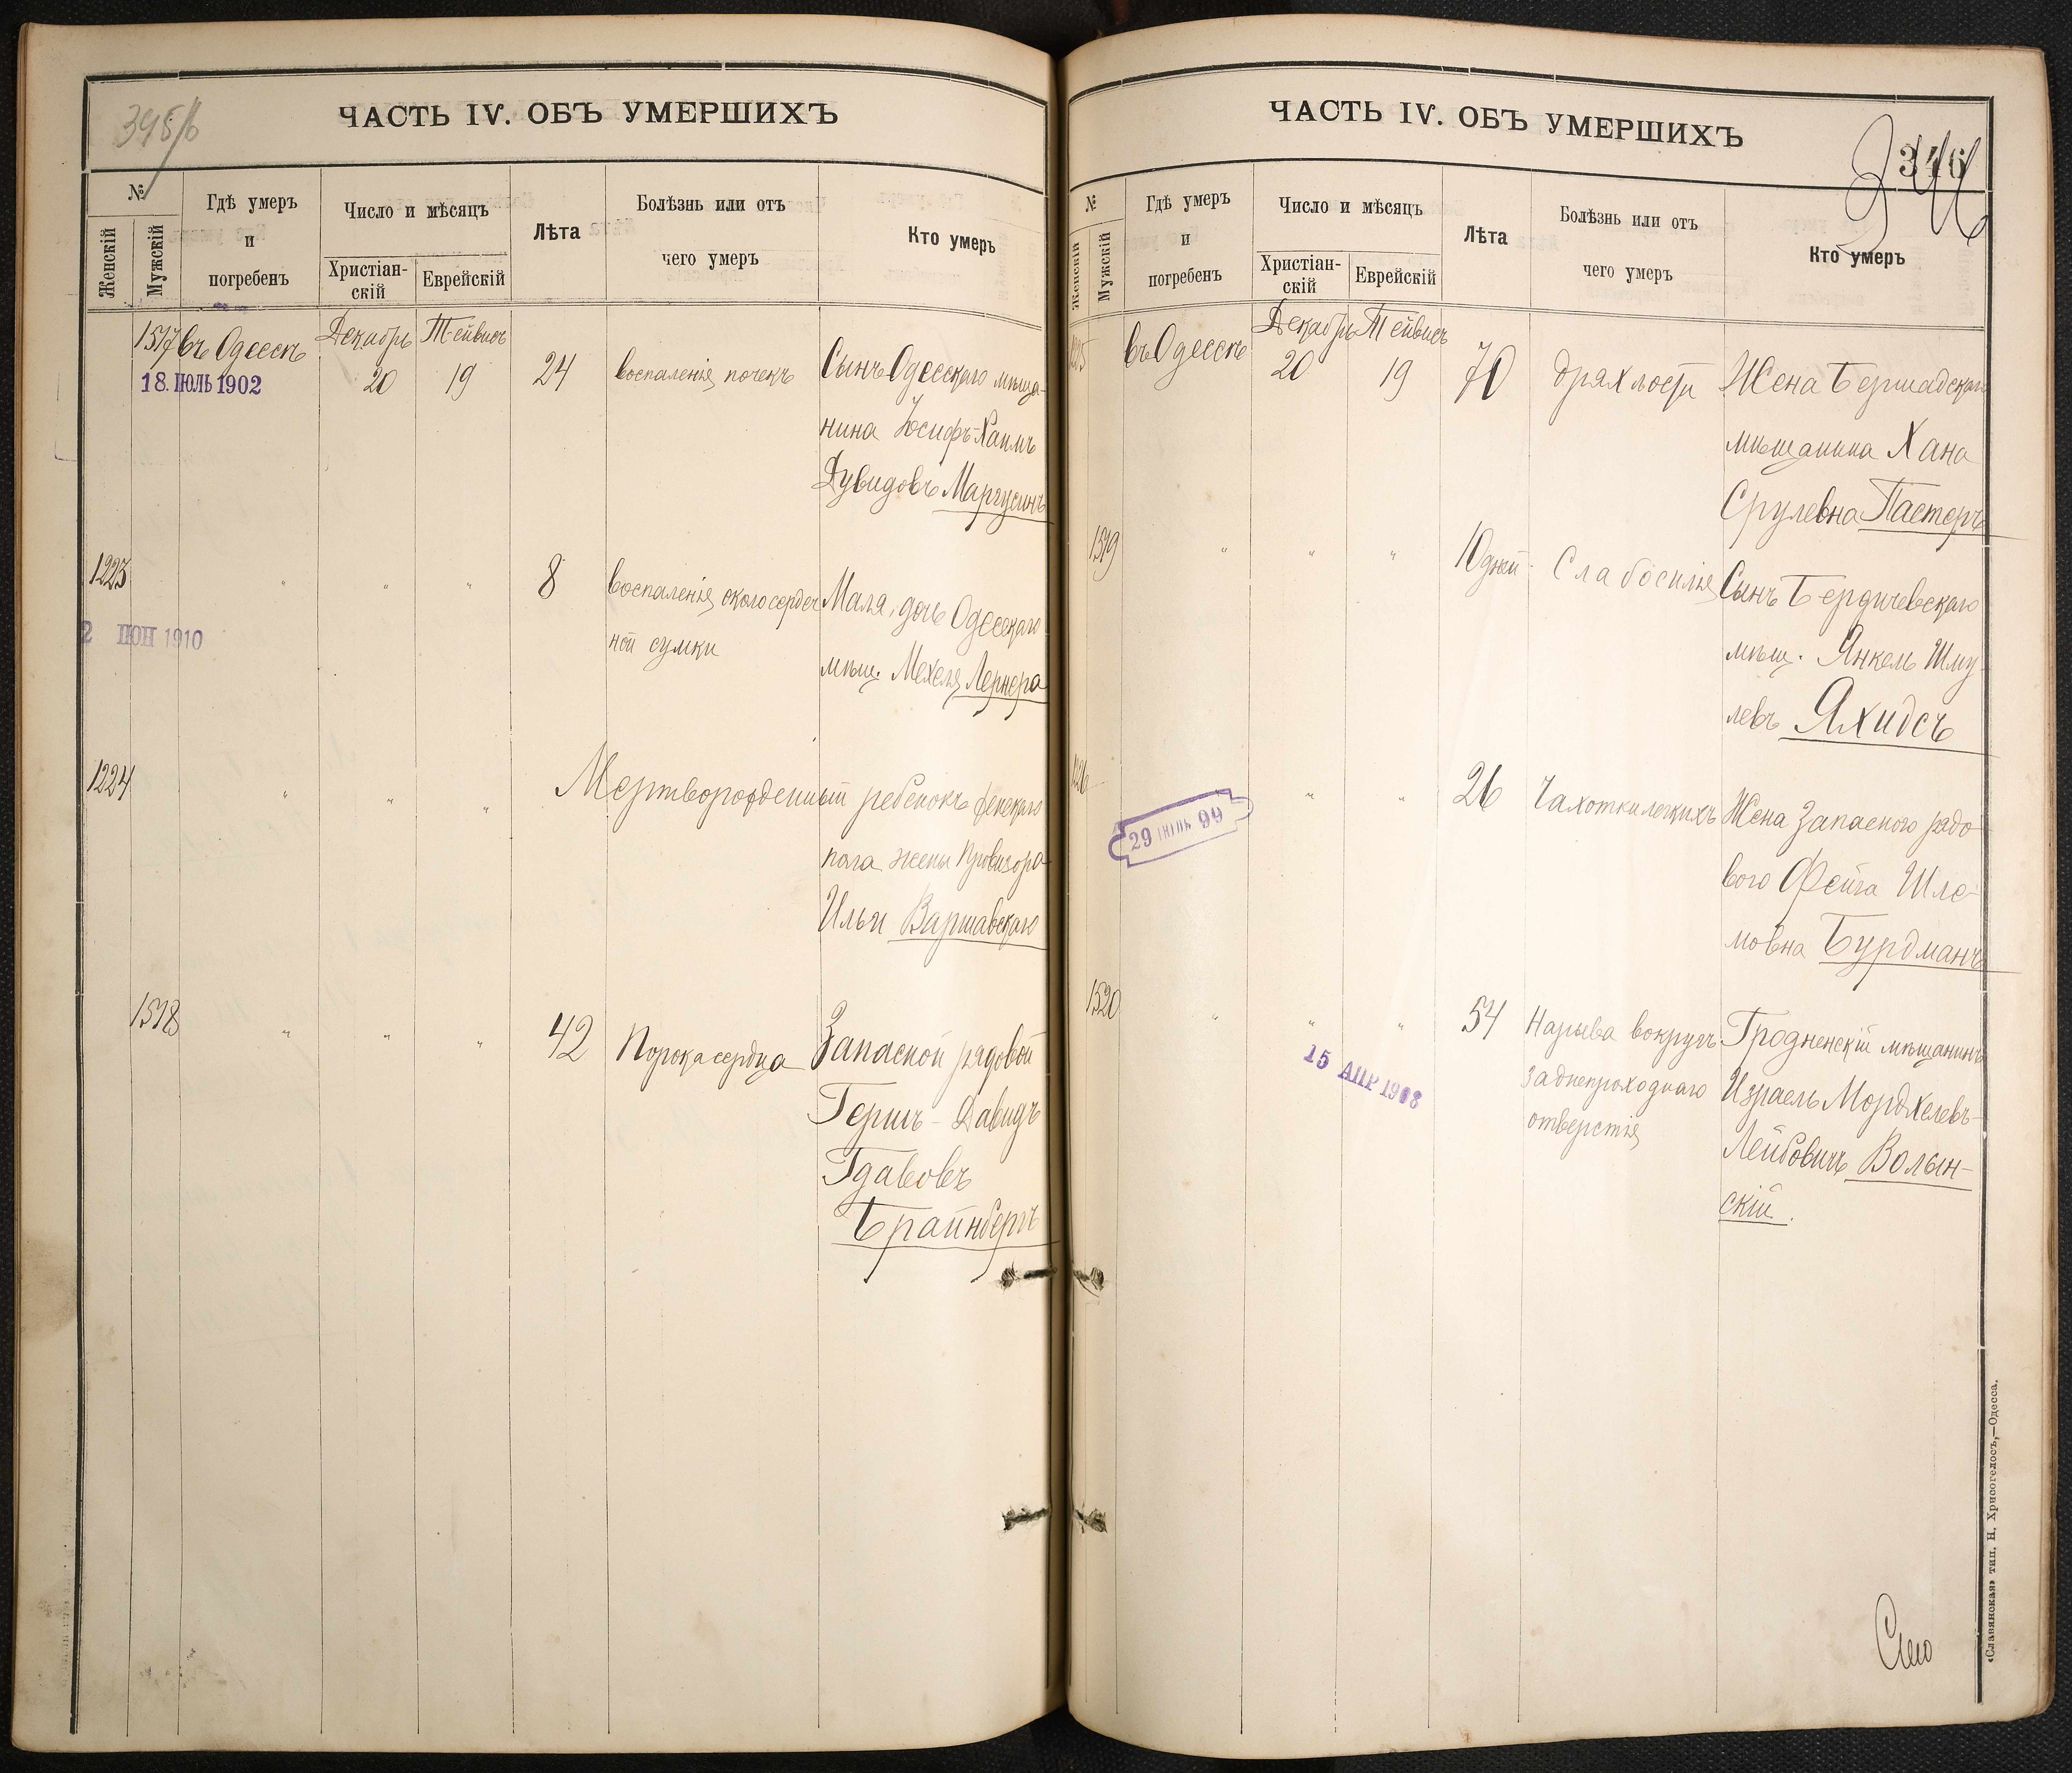 395/6
ЧАСТЬ IV. ОБЪ УМЕРШИХЪ
№
Женскій
Мужскій
Гдѣ умеръ
и
погребенъ
Число и мѣсяцъ
Христіан-
скій
Еврейскій
Лѣта
Болѣзнь или отъ
чего умеръ
Кто умеръ
1517 въ Одессѣ Декабрь Тейвисъ
18. ІЮЛЬ 1902
20 19 24 воспаленія почекъ Сынъ Одесскаго мѣща-
нина Іосифъ-Хаимъ
Дувидовъ Маргусинъ
1223 " " " 8 воспаленія околосердеч Маля, дочь Одесскаго
ной сумки мѣщ. Мехеля Лернера
2 ІЮН 1910
1224 " " " Мертворожденный ребенокъ женскаго
пола жены Провизора
Ильи Варшавскаго
1518 " " " 42 Порока сердца Запасной рядовой
Гершъ-Давидъ
Брайнбергъ
ЧАСТЬ IV. ОБЪ УМЕРШИХЪ
346
346
№
Женскій
Мужскій
Гдѣ умеръ
и
погребенъ
Число и мѣсяцъ
Христіан-
скій
Еврейскій
Лѣта
Болѣзнь или отъ
чего умеръ
Кто умеръ
1225 въ Одессѣ Декабрь Тейвисъ
20 19 70 дряхлости Жена Бершадскаго
мѣщанина Хана
Срулевна Пастеръ
1519 " " " 10 дней Слабосилія Сынъ Бердичевскаго
мѣщ. Янкель Шму
левъ Яхидсъ
1226 " " 26 Чахотки легкихъ Жена Запасного рядо-
29 ІЮНЬ 99
вого Фейга Шле-
мовна Бурдманъ
1520 " " " 54 Нарыва вокругъ Гродненскій мѣщанинъ
15 АПР 1908
заднепроходнаго Израель Мордхелевъ-
отверстія Лейбовичъ Волын-
скій.
«Славянская» тип. Н. Хрисогелосъ,—Одесса.